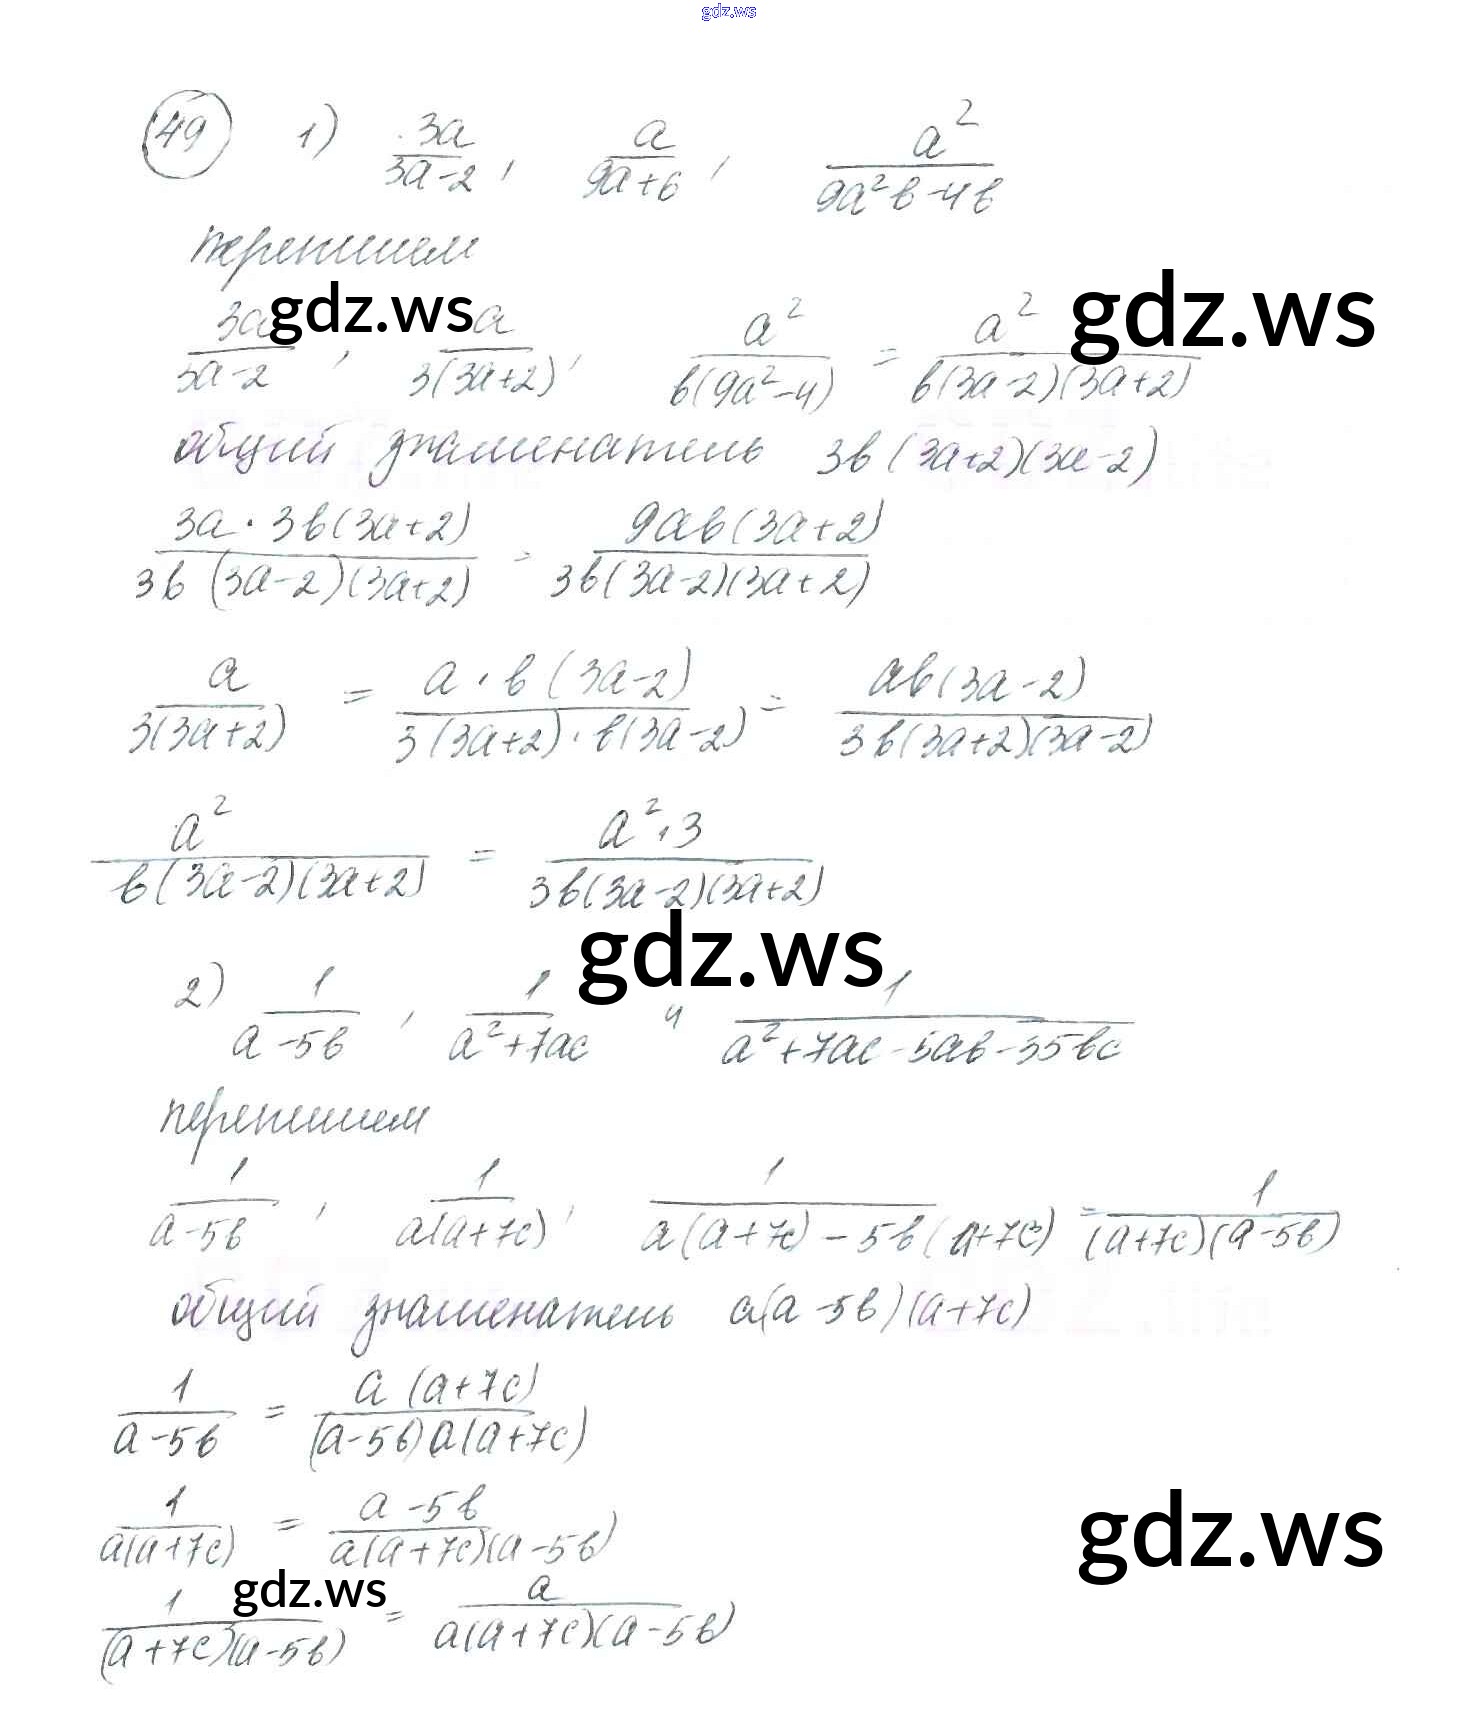 gdz.ws
49 1) 3a/(3a-2), a/(9a+6), a²/(9a²в-4в)
перепишем
gdz.ws
gdz.ws
3a/(3a-2), a/(3(3a+2)), a²/(в(9a²-4)) = a²/(в(3a-2)(3a+2))
общий знаменатель 3в(3a+2)(3a-2)
(3a·3в(3a+2))/(3в(3a-2)(3a+2)) = (9aв(3a+2))/(3в(3a-2)(3a+2))
a/(3(3a+2)) = (a·в(3a-2))/(3(3a+2)·в(3a-2)) = (aв(3a-2))/(3в(3a+2)(3a-2))
a²/(в(3a-2)(3a+2)) = (a²·3)/(3в(3a-2)(3a+2))
gdz.ws
2) 1/(a-5в), 1/(a²+7ac) и 1/(a²+7ac-5aв-35вc)
перепишем
1/(a-5в), 1/(a(a+7c)), 1/(a(a+7c)-5в(a+7c)) = 1/((a+7c)(a-5в))
общий знаменатель a(a-5в)(a+7c)
1/(a-5в) = (a(a+7c))/((a-5в)a(a+7c))
1/(a(a+7c)) = (a-5в)/(a(a+7c)(a-5в))
gdz.ws
gdz.ws
1/((a+7c)(a-5в)) = a/(a(a+7c)(a-5в))